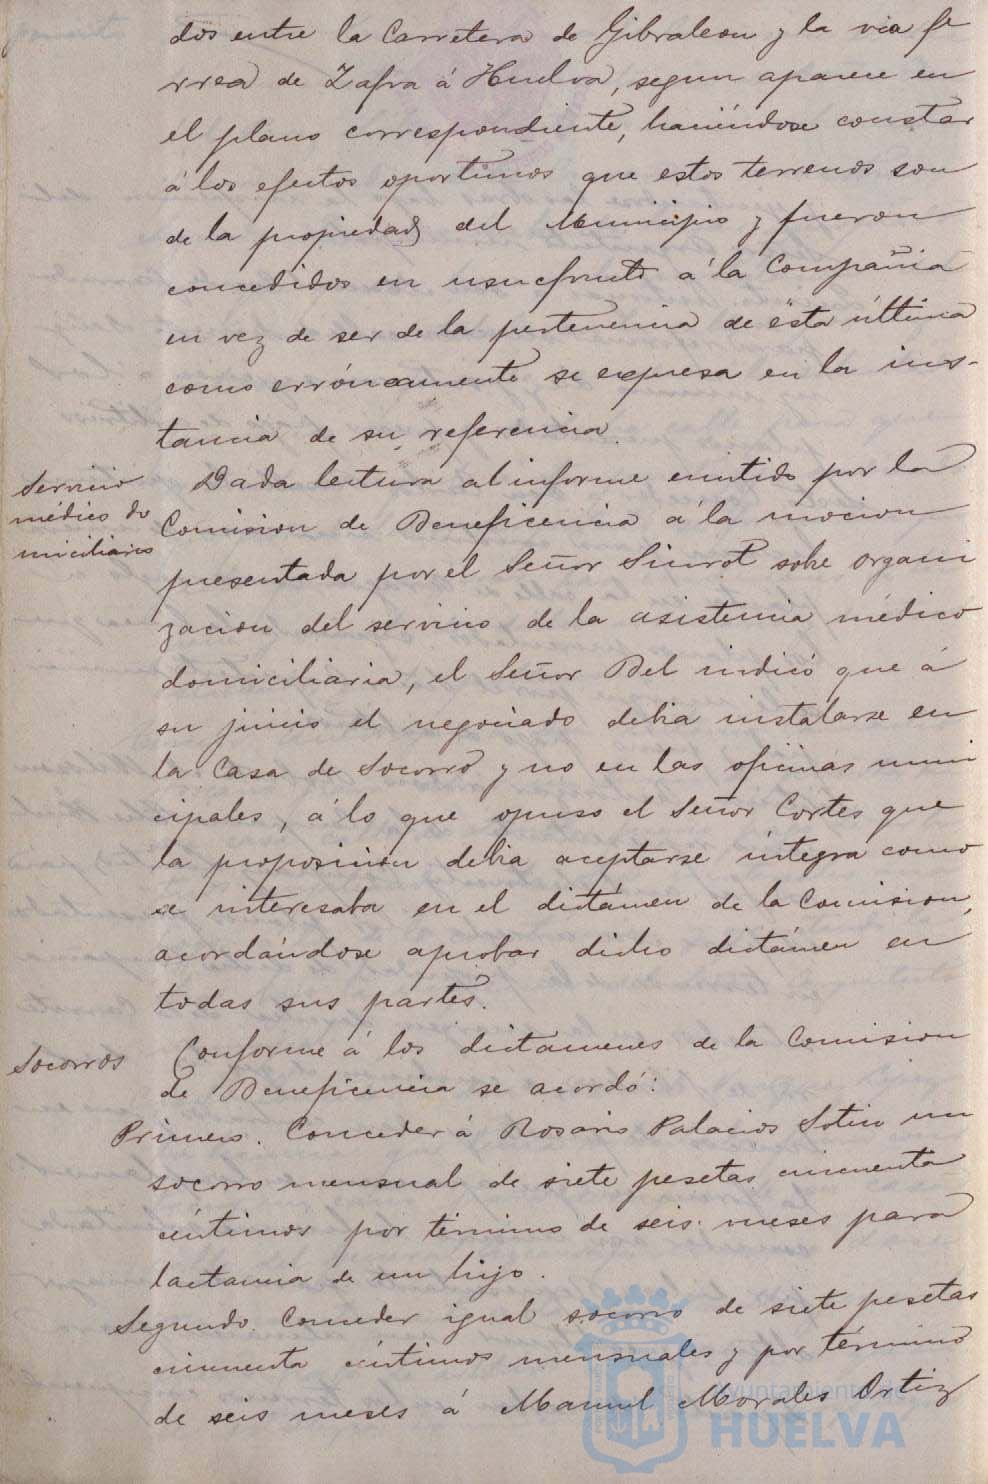 dos entre la Carretera de Gibraleon y la via fe
rrea de Zafra á Huelva, segun aparece en
el plano correspondiente, haciéndose constar
á los efectos oportunos que estos terrenos son
de la propiedad del Municipio y fueron
concedidos en usucfruto á la Compañia
en vez de ser de la pertenencia de ésta última
como erróneamente se expresa en la ins-
tancia de su referencia.
Servicio
médico do
miciliario
Dada lectura al informe emitido por la
Comision de Beneficencia á la mocion
presentada por el Señor Siurot sobre organi
zacion del servicio de la asistencia médico
domiciliaria, el Señor Bel indicó que á
su juicio el negociado debia instalarse en
la Casa de Socorro y no en las oficinas muni
cipales, á lo que opuso el Señor Cortes que
la proposicion debia aceptarse íntegra como
se interesaba en el dictámen de la Comision,
acordándose aprobar dicho dictámen en
todas sus partes.
Socorros
Conforme á los dictamenes de la Comision
de Beneficencia se acordó:
Primero. Conceder á Rosario Palacios Sotin un
socorro mensual de siete pesetas cincuenta
céntimos por término de seis meses para
lactancia de un hijo.
Segundo. Conceder igual socorro de siete pesetas
cincuenta céntimos mensuales y por término
de seis meses á Manuel Morales Ortiz
Ayuntamiento de
HUELVA